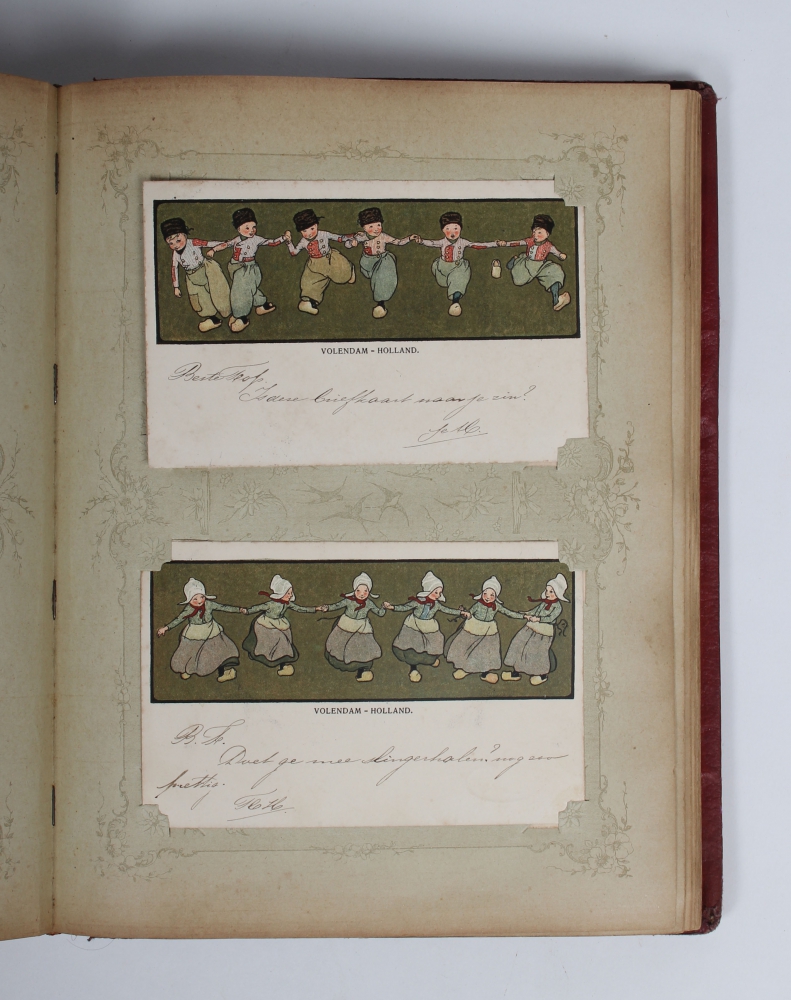 VOLENDAM - HOLLAND.
Beste
Is deze briefkaart naar je zin?
VOLENDAM - HOLLAND.
Doet ge mee slingerhalen?
prettig.